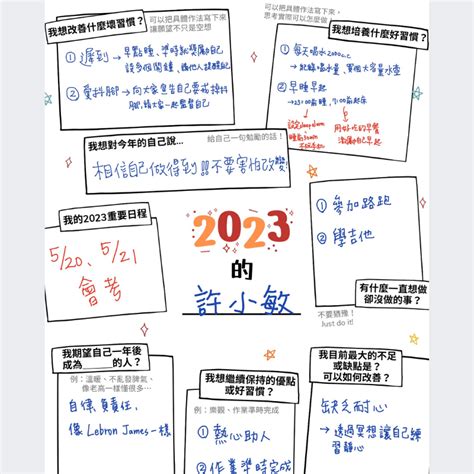 我想改善什麼壞習慣？
可以把具體作法寫下來
讓願望不只是空想
① 遲到 → 早點睡、準時起獎勵自己
設多個鬧鐘、請他人提醒自己
② 愛抖腳 → 向大家宣告自己要戒掉抖
腳,請大家一起監督自己
可以把具體作法寫下來，
思考實際可以怎麼做
我想培養什麼好習慣？
① 每天喝水2000c.c.
→ 記錄喝水量、買個大容量水壺
② 早睡早起
→ 23:00前睡，7:00前起床
設定sleep alarm
睡前30min
不碰手機
用好吃的早餐
獎勵自己早起
我想對今年的自己說...
給自己一句勉勵的話！
相信自己做得到!!! 不要害怕改變
我的2023重要日程
5/20、5/21
會考
2023
的
許小敏
① 參加路跑
② 學吉他
有什麼一直想做
卻沒做的事？
不要猶豫！
Just do it!
我期望自己一年後
成為_____的人？
例：溫暖、不亂發脾氣、
像老高一樣懂很多...
自律、負責任,
像Lebron James一樣
我想繼續保持的優點
或好習慣？
例：樂觀、作業準時完成
① 熱心助人
② 作業準時完成
我目前最大的不足
或缺點是？
可以如何改善？
缺乏耐心
→ 透過冥想讓自己練
習靜心